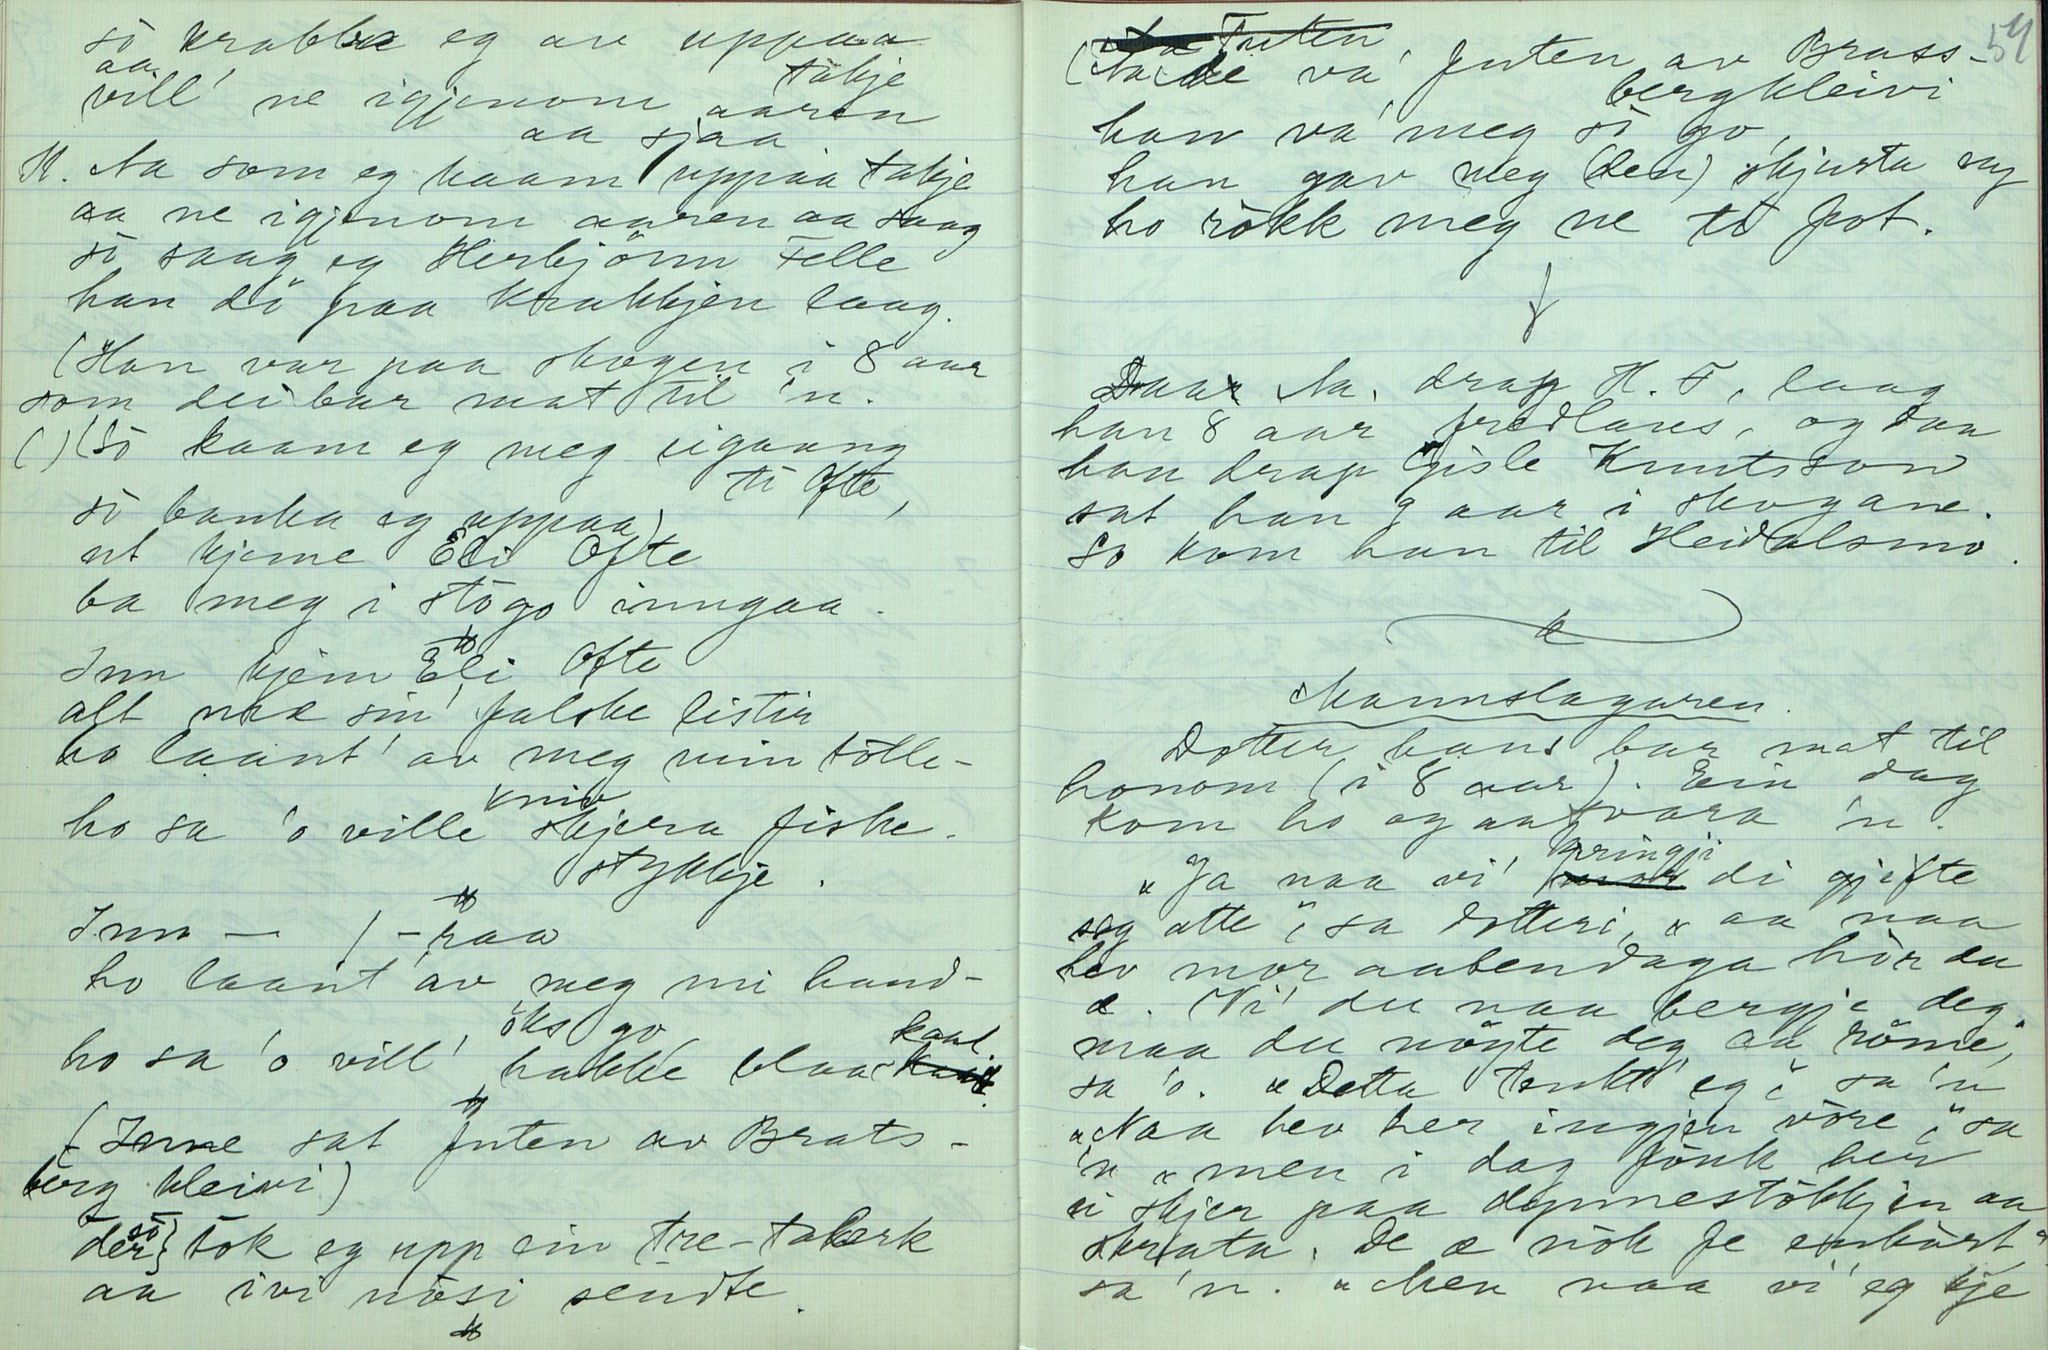 sò krabba eg av uppaa
takje
aa vill' ne igjenom aaren
aa sjaa
N. Aa som eg kaam uppaa takje
aa ne igjenom aaren aa saag
sò saag eg Herbjörn Felle
han dö paa krakkjen laag.
(Han var paa skogen i 8 aar
som dei bar mat til 'n.
( ) (Sò kaam eg meg igaang
ti Ofte,
sò banka eg uppaa)
ut kjeme Eli Ofte
ba meg i stògo inngaa.
Inn kjem Eli Ofte
alt mæ sin' falske listir
ho laant' av meg min tölle-
kniv
ho sa 'o ville skjera fiske-
stykkje.
Inn — / - raa
ho laant' av meg mi hand-
öks go
ho sa 'o vill' hakke blaa-
kaal
(Inne sat futen av Brats-
berg kleivi)
der sò tok eg upp ein tre-talerk
aa ivi nòsi sendte.
54
Futen
(Aa de va' futen av Brass-
bergkleivi
han va' meg sò go,
han gav meg (den) skjusta ny
ho rökk meg ne ti fot.
Daa Aa. drap H. F, laag
han 8 aar fredlaus, og daa
han drap Gisle Knutsson
sat han 9 aar i skogane.
So kom han til Heidalsmo.
Mannslagaren.
Dotter hans bar mat til
honom (i 8 aar). Ein dag
kom ho og aatvara 'n.
"Ja naa vi' kringji di gjifte
seg atte", sa dotteri, "aa naa
hev mor aabendaga hòr du
æ. Vi' du naa bergje deg,
maa du nöyte deg aa röme",
sa 'o. "Detta tenkt' eg", sa 'n
"Naa hev her ingjen vòre", sa
'n "men i dag fönk her
ei skjer paa dynnestòkkjen aa
skrata. De æ nòk fe enbòrt"
sa 'n. "Men naa vi' eg kje